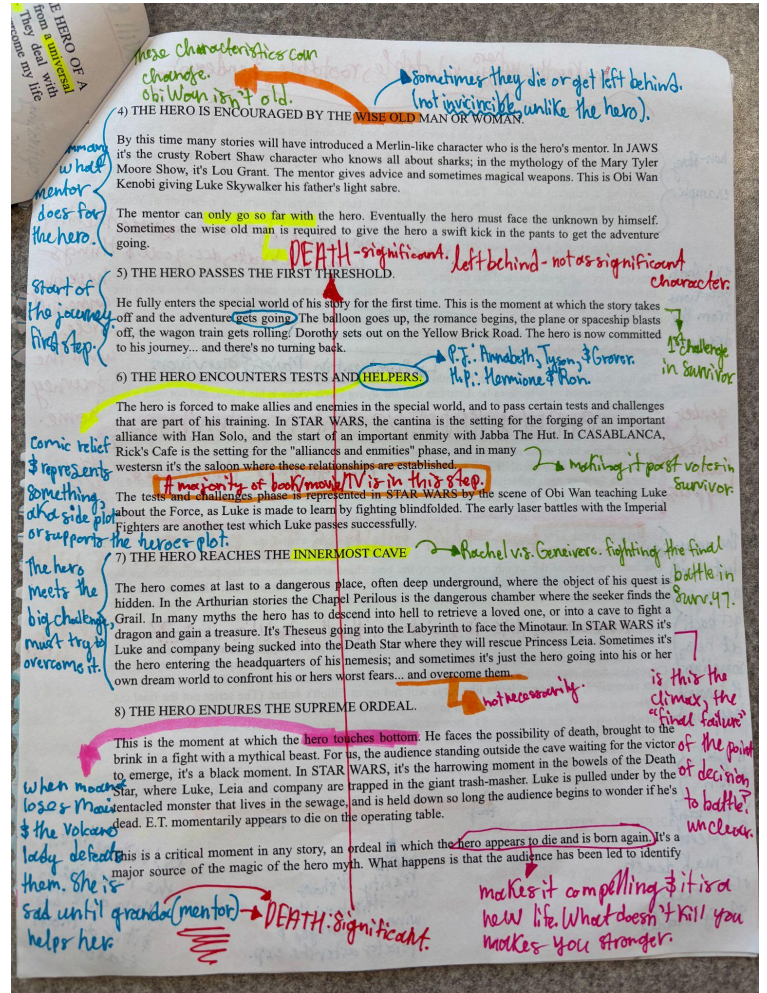 E HERO OF A
from a universal
They deal with
come my life
These characteristics can
change.
obi Woan isn't old.
sometimes they die or get left behind.
(not invicincible, unlike the hero).
4) THE HERO IS ENCOURAGED BY THE WISE OLD MAN OR WOMAN.
By this time many stories will have introduced a Merlin-like character who is the hero's mentor. In JAWS
it's the crusty Robert Shaw character who knows all about sharks; in the mythology of the Mary Tyler
Moore Show, it's Lou Grant. The mentor gives advice and sometimes magical weapons. This is Obi Wan
Kenobi giving Luke Skywalker his father's light sabre.
what
mentor
does for
the hero.
The mentor can only go so far with the hero. Eventually the hero must face the unknown by himself.
Sometimes the wise old man is required to give the hero a swift kick in the pants to get the adventure
going.
DEATH - significant. left behind - not as significant
character.
5) THE HERO PASSES THE FIRST THRESHOLD.
start of
the journey,
first step.
He fully enters the special world of his story for the first time. This is the moment at which the story takes
off and the adventure gets going. The balloon goes up, the romance begins, the plane or spaceship blasts
off, the wagon train gets rolling. Dorothy sets out on the Yellow Brick Road. The hero is now committed
to his journey... and there's no turning back.
1st challenge
in survivor
P.J.: Annabeth, Tyson, & Grover.
H.P.: Hermione & Ron.
6) THE HERO ENCOUNTERS TESTS AND HELPERS.
The hero is forced to make allies and enemies in the special world, and to pass certain tests and challenges
that are part of his training. In STAR WARS, the cantina is the setting for the forging of an important
alliance with Han Solo, and the start of an important enmity with Jabba The Hut. In CASABLANCA,
Rick's Cafe is the setting for the "alliances and enmities" phase, and in many
westersn it's the saloon where these relationships are established.
A majority of book/movie/TV is in this step.
making it past votes in
survivor.
Comic relief
& represents
something,
aka side plot
or supports the heroes plot.
The tests and challenges phase is represented in STAR WARS by the scene of Obi Wan teaching Luke
about the Force, as Luke is made to learn by fighting blindfolded. The early laser battles with the Imperial
Fighters are another test which Luke passes successfully.
7) THE HERO REACHES THE INNERMOST CAVE
Rachel v.s. Genevieve. fighting the final
battle in
Surv. 47.
The hero
meets the
big challenge,
must try to
overcome it.
The hero comes at last to a dangerous place, often deep underground, where the object of his quest is
hidden. In the Arthurian stories the Chapel Perilous is the dangerous chamber where the seeker finds the
Grail. In many myths the hero has to descend into hell to retrieve a loved one, or into a cave to fight a
dragon and gain a treasure. It's Theseus going into the Labyrinth to face the Minotaur. In STAR WARS it's
Luke and company being sucked into the Death Star where they will rescue Princess Leia. Sometimes it's
the hero entering the headquarters of his nemesis; and sometimes it's just the hero going into his or her
own dream world to confront his or hers worst fears... and overcome them.
not necessarily.
is this the
climax, the
"final failure"
of the point
of decision
to battle?
unclear.
8) THE HERO ENDURES THE SUPREME ORDEAL.
This is the moment at which the hero touches bottom. He faces the possibility of death, brought to the
brink in a fight with a mythical beast. For us, the audience standing outside the cave waiting for the victor
to emerge, it's a black moment. In STAR WARS, it's the harrowing moment in the bowels of the Death
Star, where Luke, Leia and company are trapped in the giant trash-masher. Luke is pulled under by the
tentacled monster that lives in the sewage, and is held down so long the audience begins to wonder if he's
dead. E.T. momentarily appears to die on the operating table.
when moana
loses Maui
& the volcano
lady defeats
them. She is
sad until granda (mentor)
helps her.
This is a critical moment in any story, an ordeal in which the hero appears to die and is born again. It's a
major source of the magic of the hero myth. What happens is that the audience has been led to identify
DEATH: significant.
makes it compelling & it is a
new life. What doesn't kill you
makes you stronger.